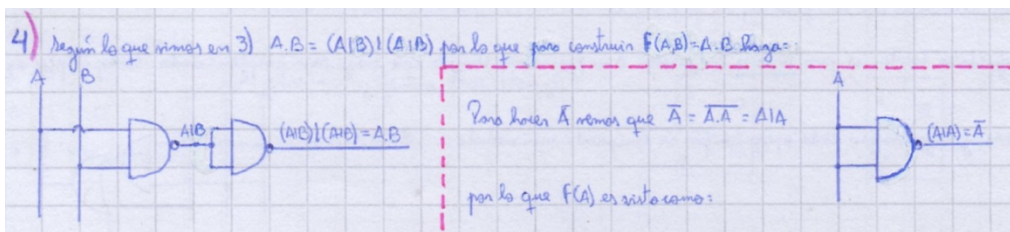 4) Según lo que vimos en 3) A.B = (A|B)|(A|B) por lo que para construir F(A,B)=A.B haga=:
A B
A|B
(A|B)|(A|B) = A.B
Para hacer A̅ vemos que A̅ = A̅.̅A̅ = A|A
por lo que F(A) es visto como:
A
(A|A) = A̅